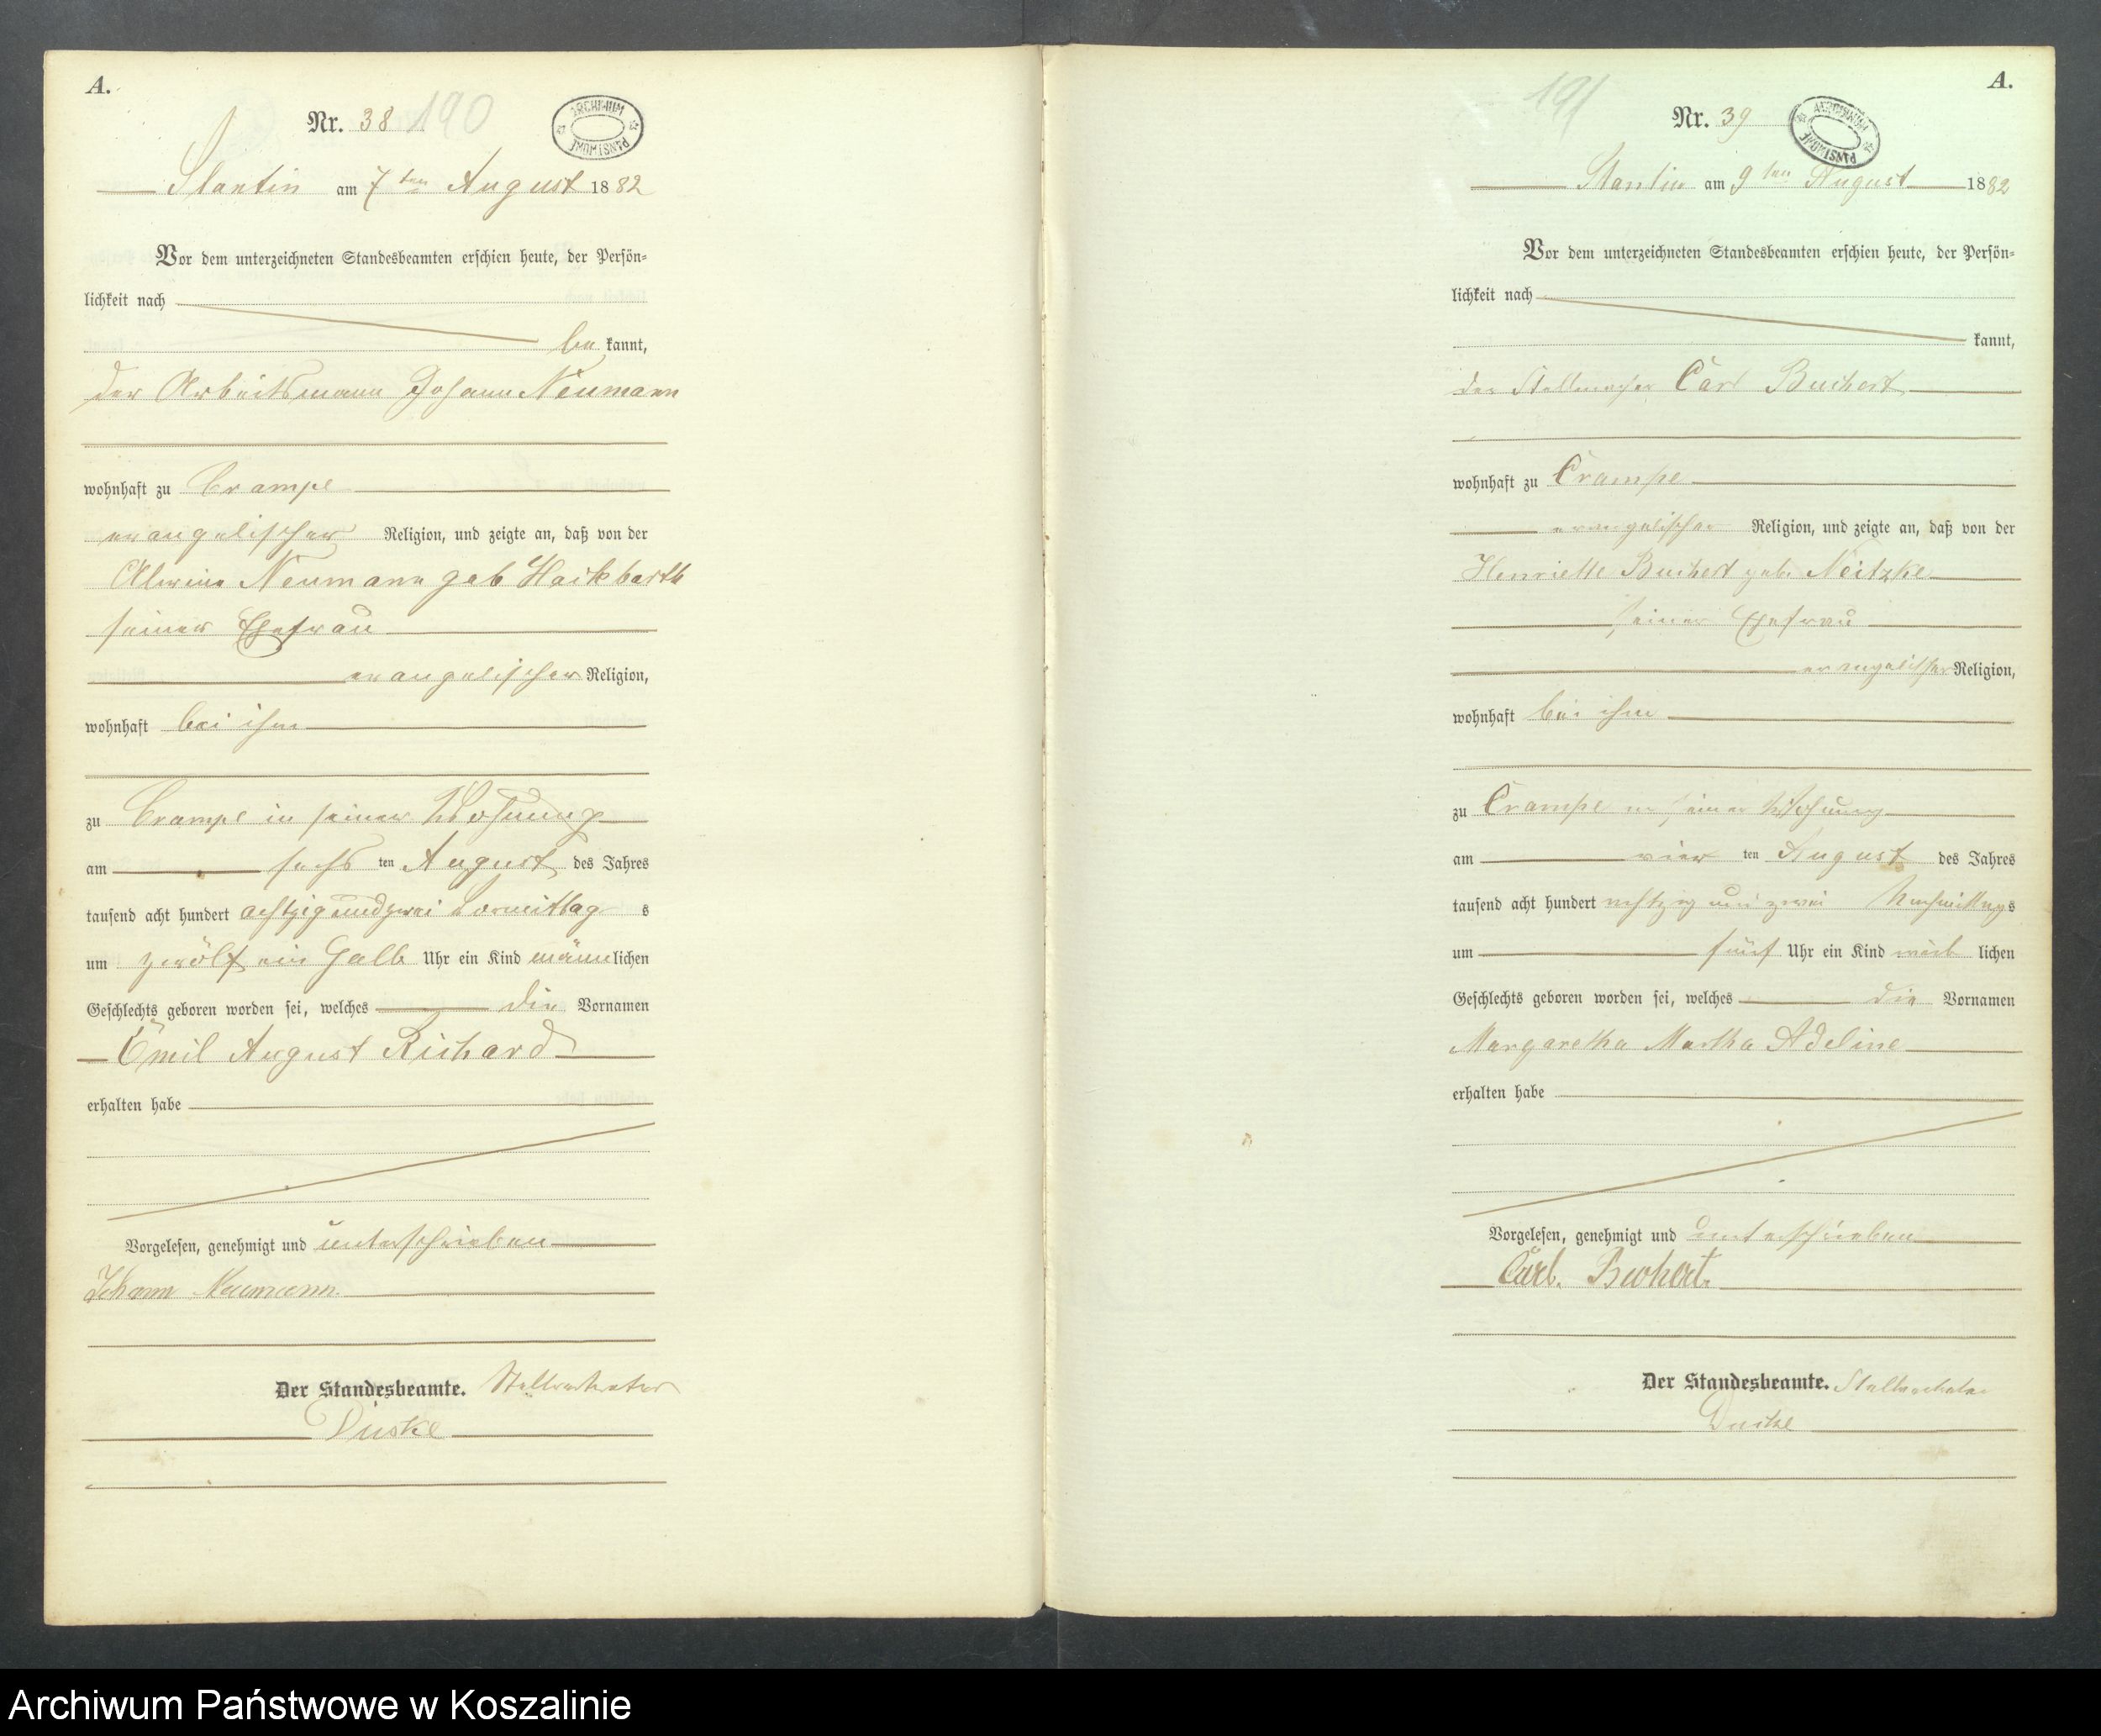 A.
Nr. 38 190
ARCHIWUM PAŃSTWOWE
Stantin am 7ten August 1882
Vor dem unterzeichneten Standesbeamten erschien heute, der Persön-
lichkeit nach
be kannt,
der Arbeitsmann Johann Neumann
wohnhaft zu Crampe
evangelischer Religion, und zeigte an, daß von der
Alwine Neumann geb Hackbarth
seiner Ehefrau
evangelischer Religion,
wohnhaft bei ihm
zu Crampe in seiner Wohnung
am sechs ten August des Jahres
tausend acht hundert achtzig und zwei Vormittag s
um zwölf ein halb Uhr ein Kind männlichen
Geschlechts geboren worden sei, welches die Vornamen
Emil August Richard
erhalten habe
Vorgelesen, genehmigt und unterschrieben
Johann Neumann.
Der Standesbeamte. Stellvertreter
A.
191
Nr. 39
ARCHIWUM PAŃSTWOWE
Stantin am 9ten August 1882
Vor dem unterzeichneten Standesbeamten erschien heute, der Persön-
lichkeit nach
kannt,
der Stellmacher Carl Buchert
wohnhaft zu Crampe
evangelischer Religion, und zeigte an, daß von der
Henriette Buchert geb. Neitzke
seiner Ehefrau
evangelischer Religion,
wohnhaft bei ihm
zu Crampe in seiner Wohnung
am vier ten August des Jahres
tausend acht hundert achtzig und zwei Nachmittags
um fünf Uhr ein Kind weib lichen
Geschlechts geboren worden sei, welches die Vornamen
Margaretha Martha Adeline
erhalten habe
Vorgelesen, genehmigt und unterschrieben
Carl. Buchert.
Der Standesbeamte. Stellvertreter
Archiwum Państwowe w Koszalinie